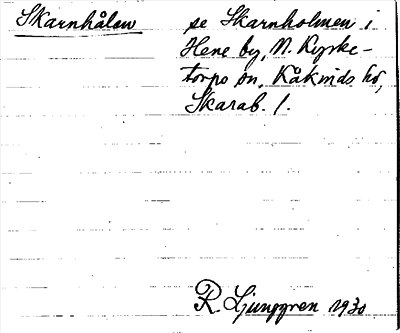 Skarnhålan se Skarnholmen i
Hene by, N. Kyrke-
torps sn, Kåkinds hd,
Skarab. l.
R. Ljunggren 1930